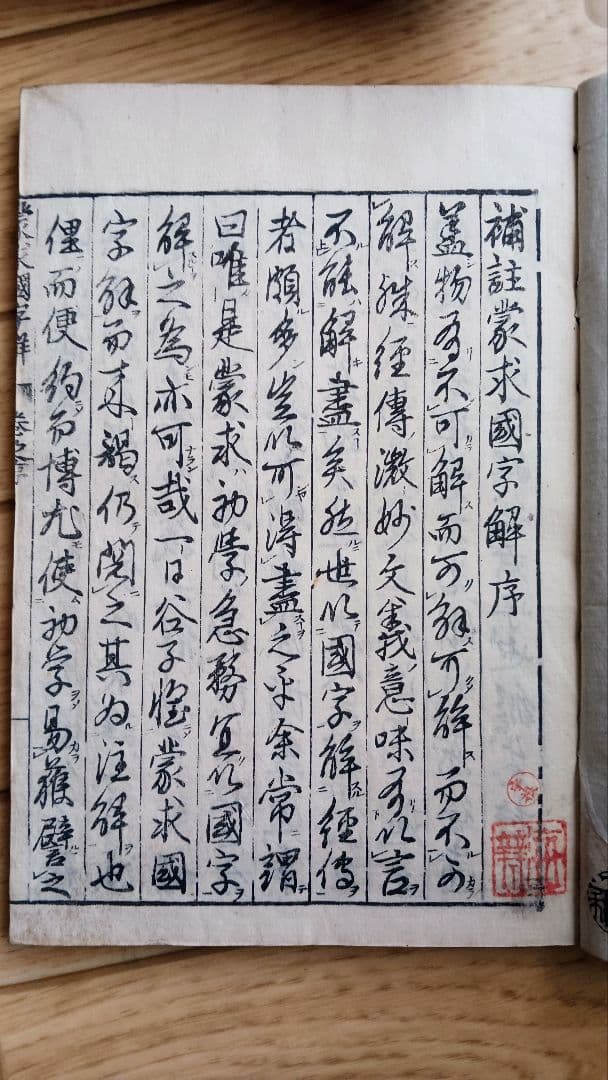 補註蒙求國字解序
蓋物有不可解而可解可解而不可
解殊經傳微妙文義意味有以言
不能解盡矣然世以國字解經傳
者頗多豈以可得盡之乎余常謂
曰唯是蒙求初學急務宜以國字
解之為亦可哉一日谷子携蒙求國
字解而来謁仍閲之其為注解也
俚而便約而博尤使初学易獲譬之
蒙求國字解